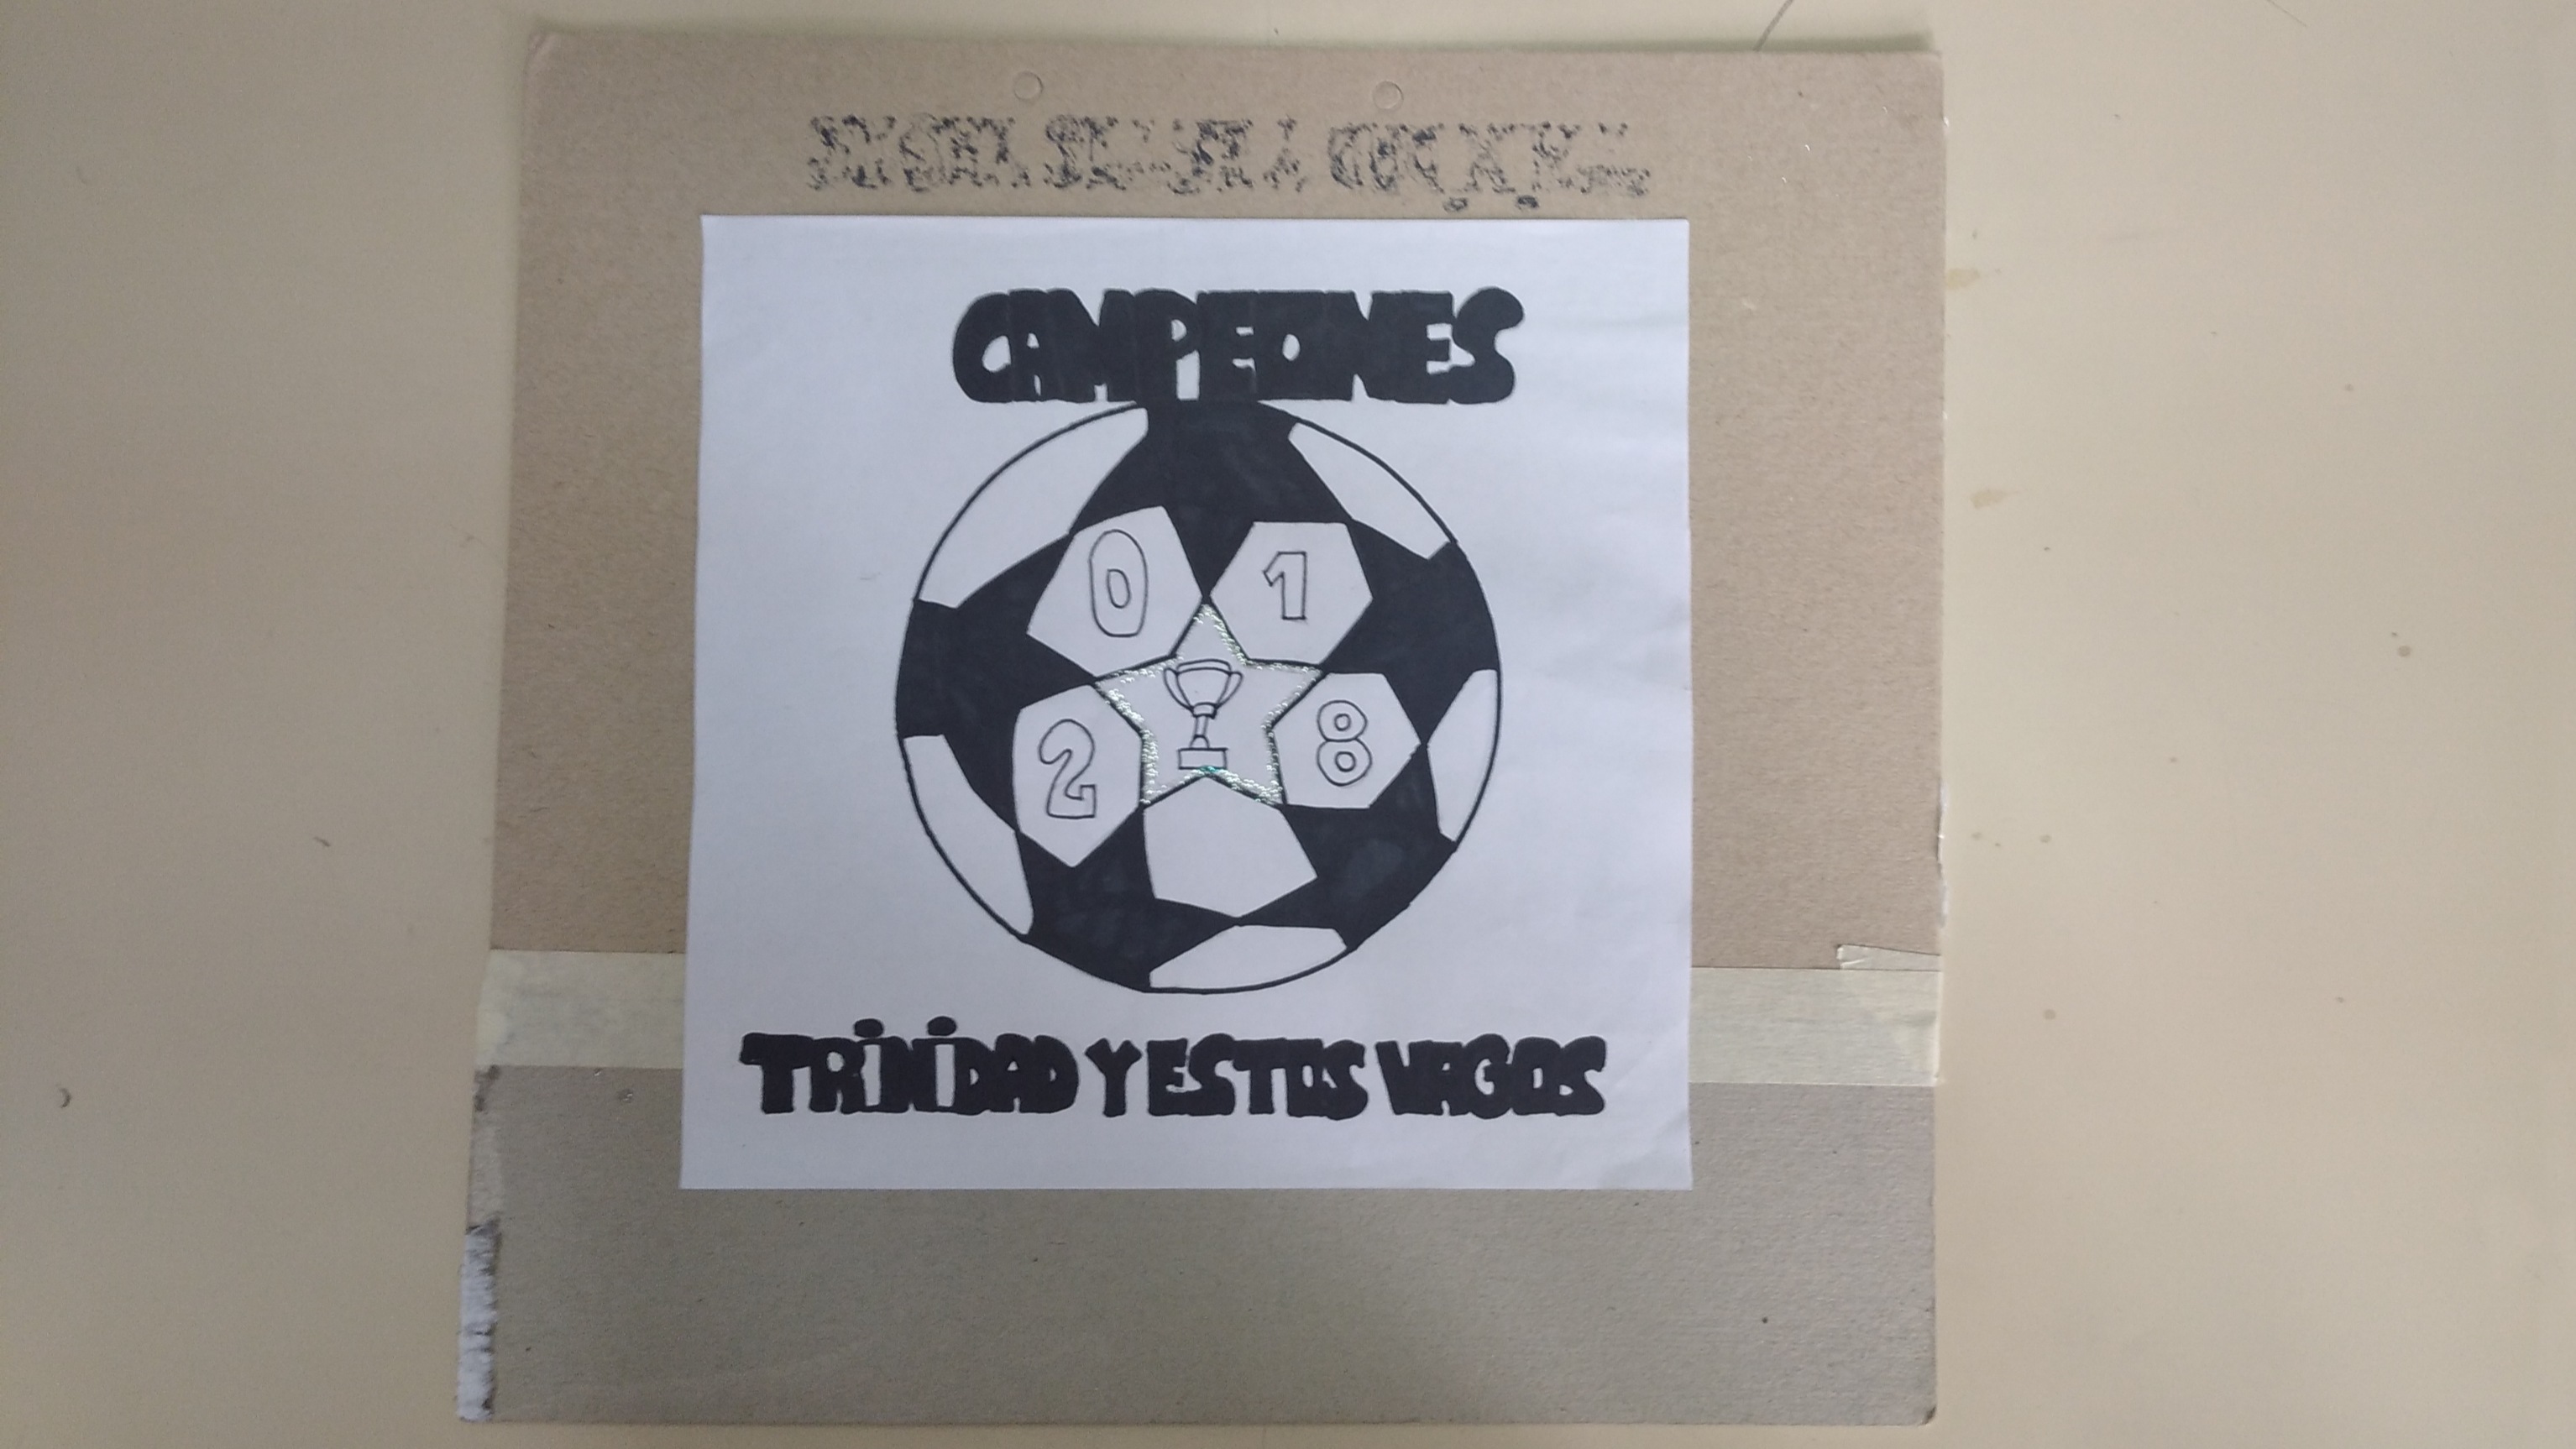 CAMPEONES
0 1
2 8
TRiNiDAD Y ESTOS VAGOS